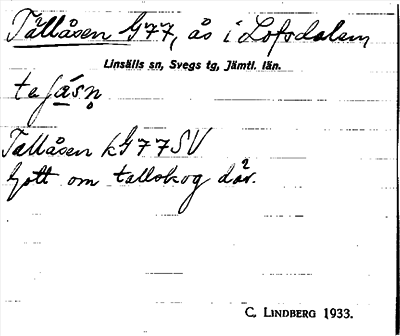 Tallåsen G77, ås i Lofsdalen
Linsälls sn, Svegs tg, Jämtl. län.
Tallåsen kG77SV
Gott om tallskog där.
C. LINDBERG 1933.